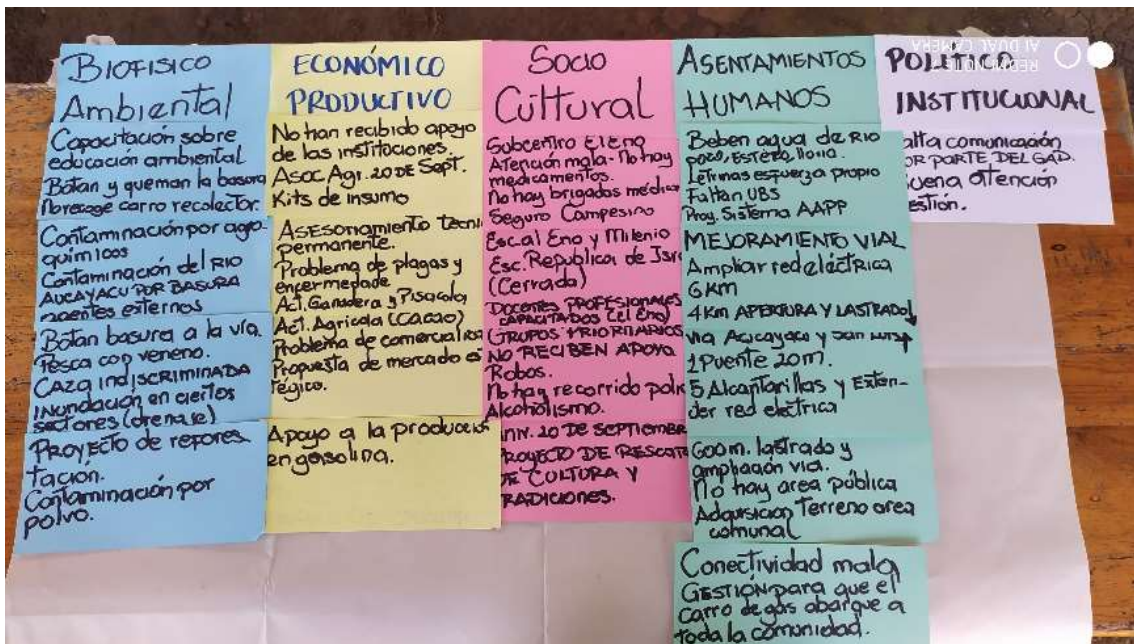 BIOFISICO
Ambiental
Capacitación sobre
educación ambiental
Botan y queman la basura
No recoge carro recolector.
Contaminación por agro-
quimicos
Contaminación del RIO
AUCAYACU POR BASURA
agentes externos
Botan basura a la vía.
Pesca con veneno.
CAZA indiscRIMINADA
INUNdación en ciertos
sectores (drenaje)
Proyecto de refores
tación.
Contaminación por
polvo.
ECONÓMICO
PRODUCTIVO
No han recibido apoyo
de las instituciones.
Asoc. Agr. 20 DE Sept.
Kits de insumo
Asesoramiento tecni
permanente.
Problema de plagas y
enfermedade
Act. Ganadera y Pisacola
Act. Agricola (CACAO)
Problema de comercializa
Propuesta de mercado es
tégico.
Apoyo a la produccion
en gasolina.
Socio
Cultural
Subcentro El Eno
Atención mala - No hay
medicamentos.
No hay brigadas médica
Seguro Campesino
Esc al Eno y Milenio
Esc. Republica de Isra
(Cerrada)
Docentes PROFESIONALES
CAPACITADOS (El Eno)
GRUPOS PRIORITARIOS
NO RECIBEN APOYO
Robos.
No hay recorrido polic
Alcoholismo.
Aniv. 20 DE SEPTIEMBRE
PROYECTO DE RESCATE
DE CULTURA Y
TRADICIONES.
ASENTAMIENTOS
HUMANOS
Beben agua de RIO
pozo, Estero, lluvia.
Letrinas esfuerzo propio
Faltan UBS
Proy. Sistema AAPP
MEJORAMIENTO VIAL
Ampliar red eléctRica
6 Km
4 Km APERTURA Y LASTRADO
via Aucayacu y San
1 Puente 20 m.
5 Alcantarillas y Exten-
der red electrica
600 m. lastrado y
ampliación via.
No hay area pública
Adquisicion Terreno area
comunal
Conectividad mala
GESTIÓN para que el
carro de gas abarque a
toda la comunidad.
POLITICO
INSTITUCIONAL
alta comunicación
OR PARTE DEL GAD.
uena atención
estión.
REDMI NOTE 7
AI DUAL CAMERA